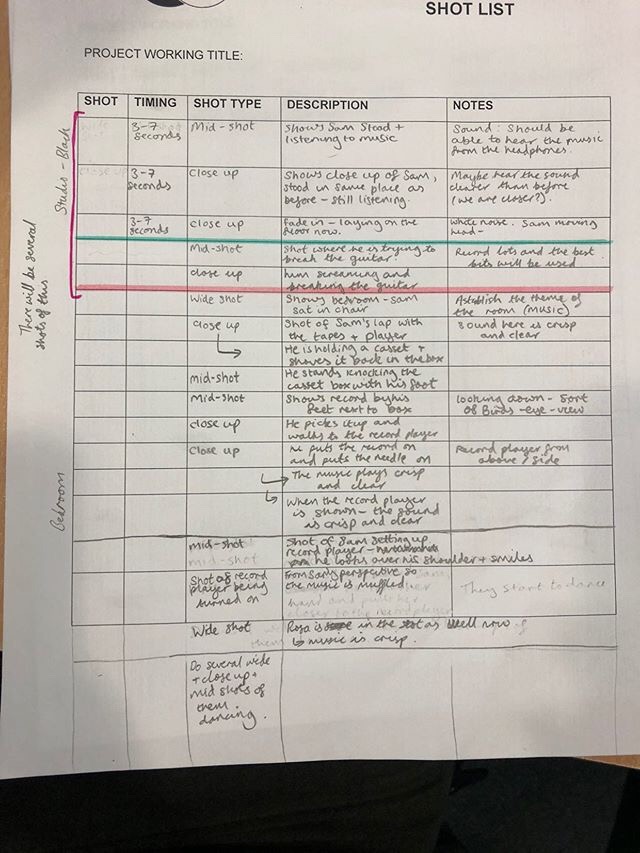 SHOT LIST
PROJECT WORKING TITLE:
SHOT TIMING SHOT TYPE DESCRIPTION NOTES
There will be several
shots of this
Studio - Black
3-7
seconds
Mid-shot
Shows Sam Stood +
listening to music
Sound: Should be
able to hear the music
from the headphones.
3-7
seconds
Close up
Shows close up of Sam,
stood in same place as
before - still listening.
Maybe hear the sound
clearer than before
(we are closer?).
3-7
seconds
close up
Fade in - laying on the
floor now.
White noise. Sam moving
head-
Mid-shot
Shot where he is trying to
break the guitar.
Record lots and the best
bits will be used
close up
him screaming and
breaking the guitar
Bedroom
Wide shot
Shows bedroom - sam
sat in chair
Establish the theme of
the room (music)
Close up
Shot of Sam's lap with
the tapes + player
Sound here is crisp
and clear
He is holding a casset +
shoves it back in the box
mid-shot
He stands knocking the
casset box with his foot
Mid-shot
Shows record by his
feet next to box
looking down - Sort
of Birds-eye-view
close up
He picks it up and
walks to the record player
Close up
he puts the record on
and puts the needle on
Record player from
above / side
The music plays crisp
and clear
When the record player
is shown - the sound
is crisp and clear
mid-shot
mid-shot
Shot of Sam setting up
record player -
he looks over his shoulder + smiles
Shot of record
player being
turned on
From Sam's perspective so
the music is muffled.
They start to dance
Wide shot
Rosa is in the shot as well now
music is crisp.
Do several wide
+ close up +
mid shots of
them
dancing.